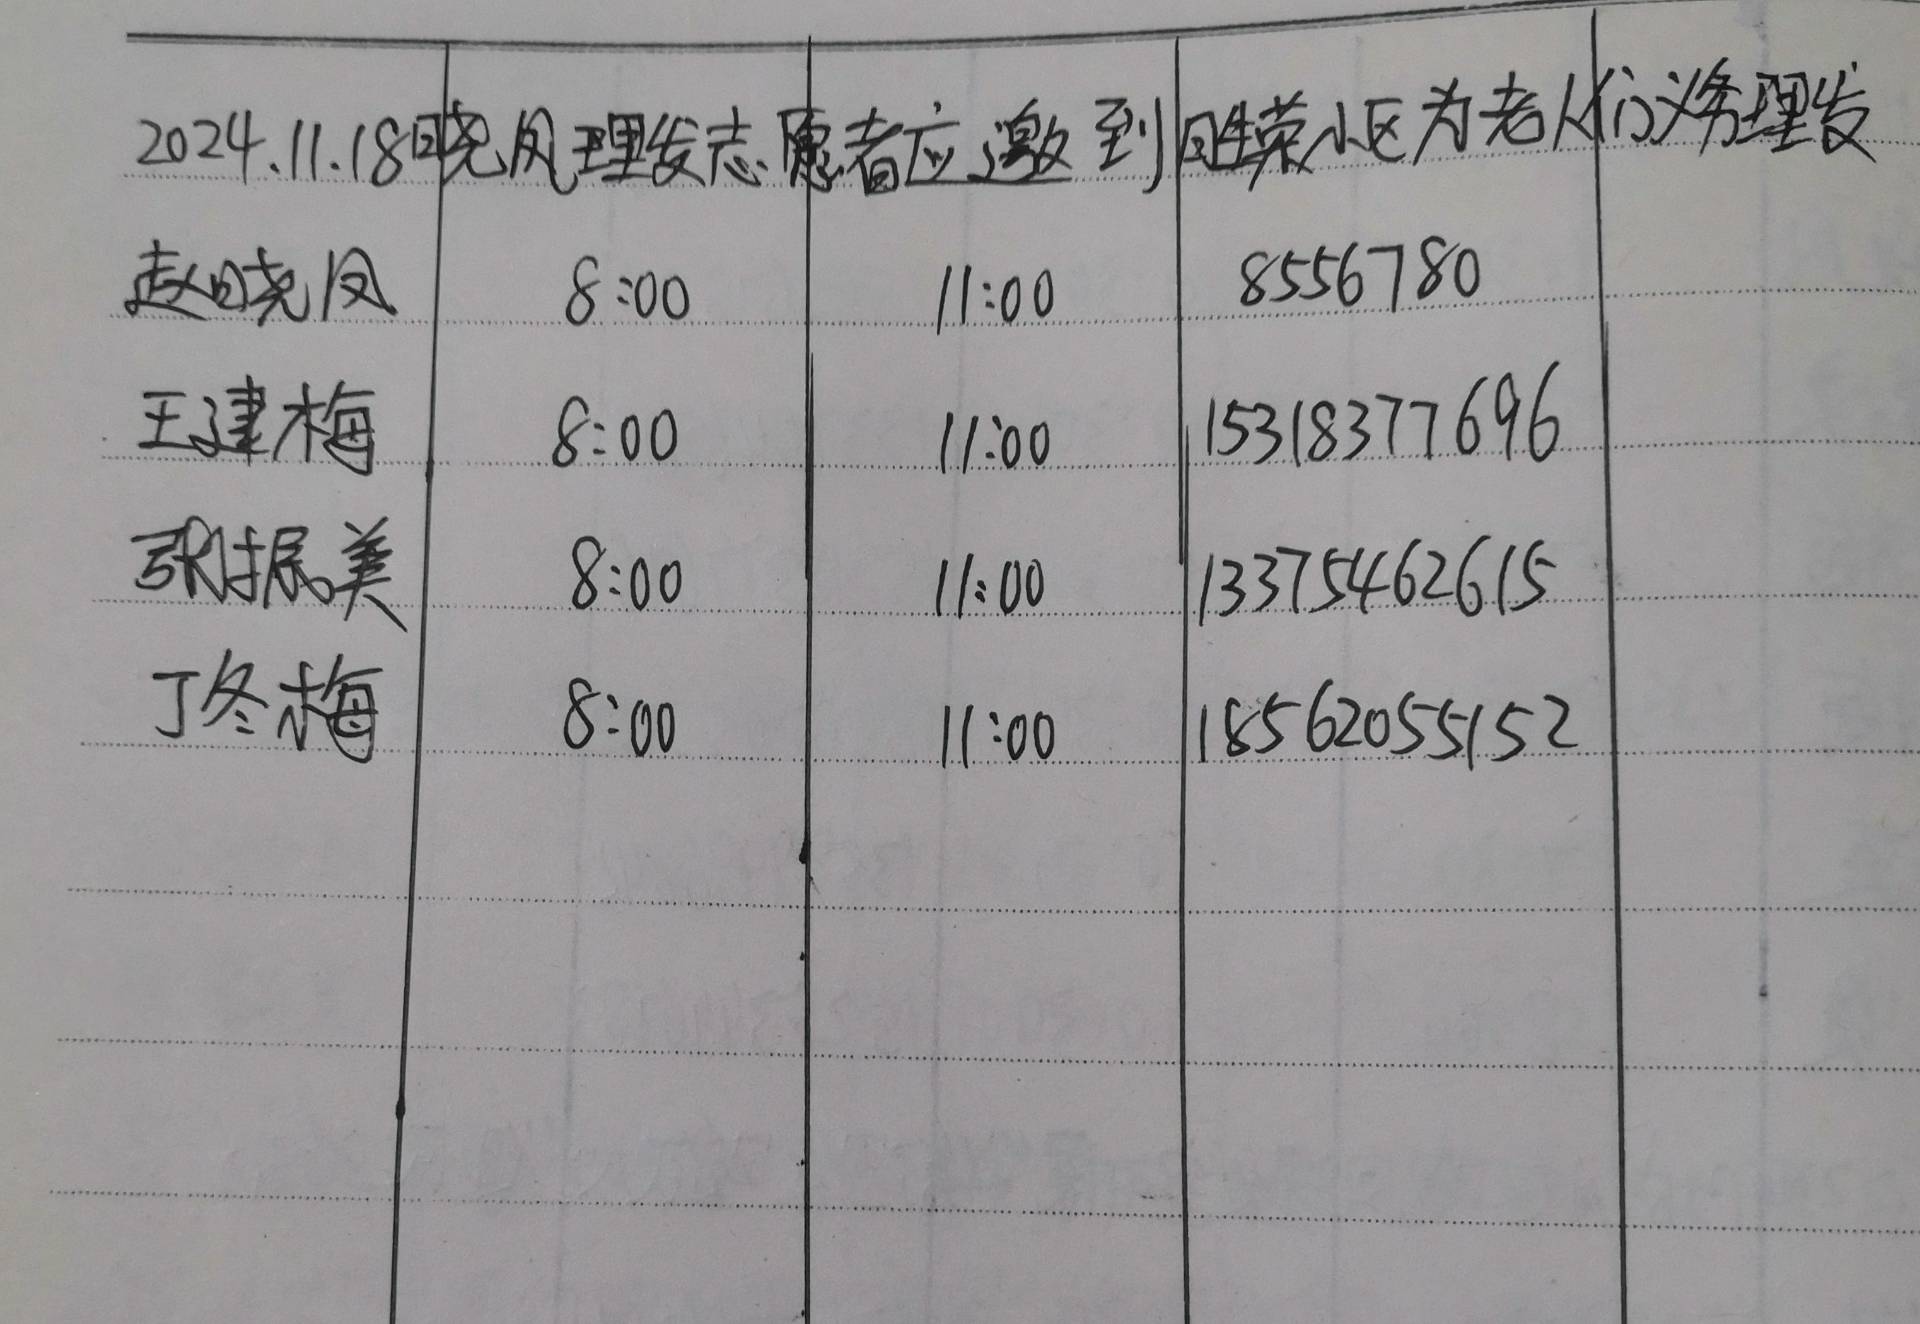 2024.11.18晓凤理发志愿者应邀到胜荣小区为老人们义务理发
赵晓凤 8:00 11:00 8556780
王建梅 8:00 11:00 15318377696
张振美 8:00 11:00 13375462615
丁冬梅 8:00 11:00 18562055152